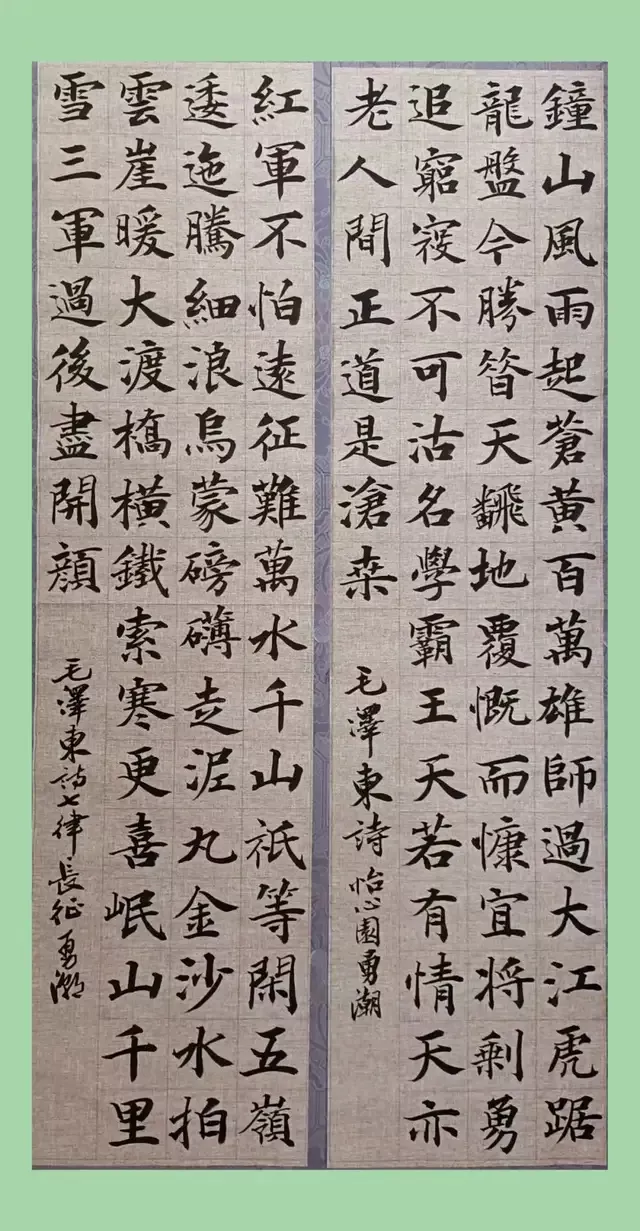 鐘山風雨起蒼黄百萬雄師過大江虎踞
龍盤今勝昔天飜地覆慨而慷宜将剩勇
追窮寇不可沽名學霸王天若有情天亦
老人間正道是滄桒
毛澤東詩 怡心園勇潮
紅軍不怕遠征難萬水千山祇等閑五嶺
逶迤騰細浪烏蒙磅礴走泥丸金沙水拍
雲崖暖大渡橋橫鐵索寒更喜岷山千里
雪三軍過後盡開顔
毛澤東詩七律長征勇潮